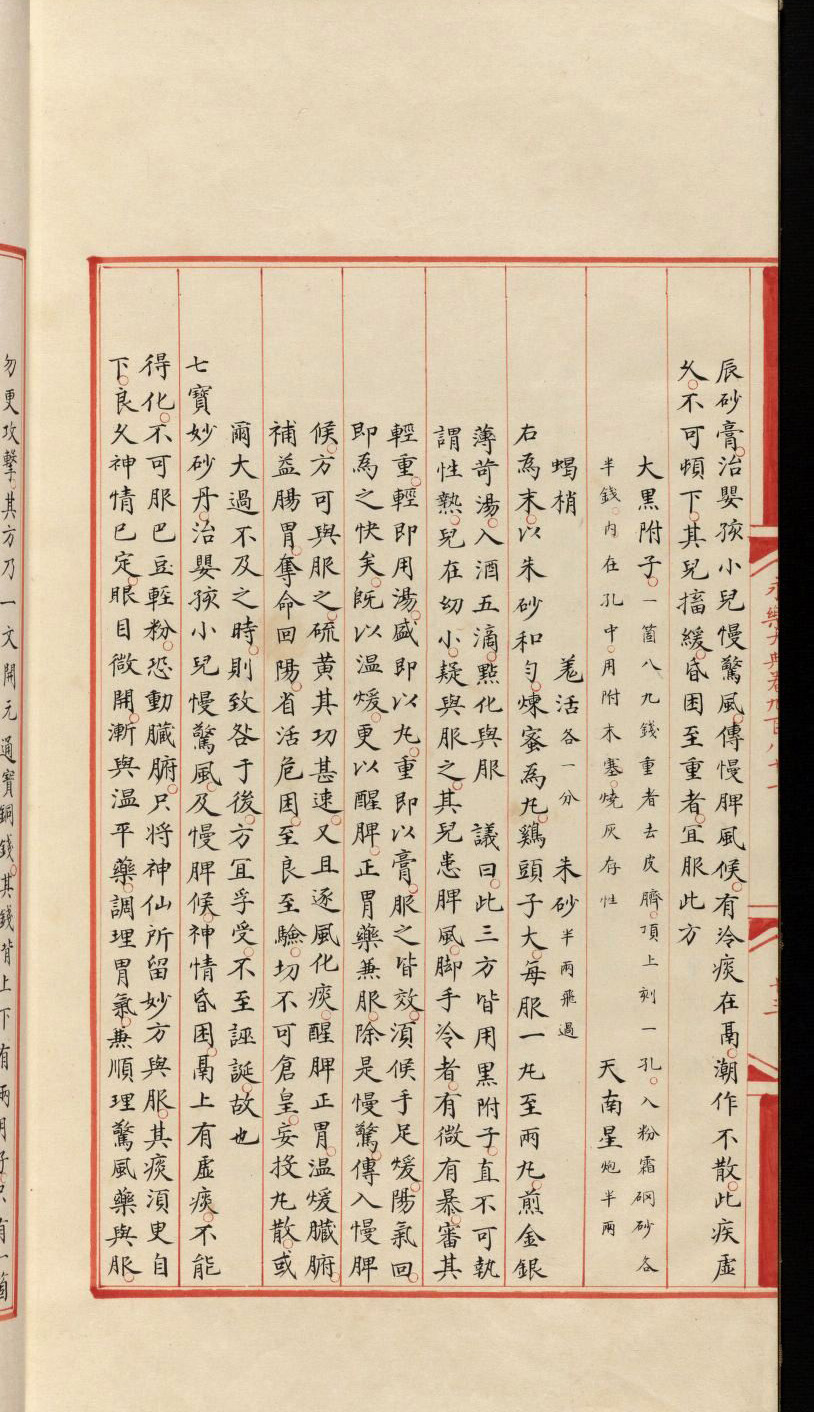 永樂大典卷九百八十一
十三
辰砂膏。治嬰孩小兒慢驚風。傳慢脾風候。有冷痰在鬲。潮作不散。此疾虛
久。不可頓下。其兒搐緩。昏困至重者。宜服此方
大黑附子。一箇八九錢重者去皮臍。頂上剜一孔。入粉霜硇砂各
半錢。内在孔中。用附末塞。燒灰存性 天南星炮半兩
蝎梢 羗活各一分 朱砂半兩飛過
右為末。以朱砂和勻。煉蜜為丸。鷄頭子大。每服一丸至兩丸。煎金銀
薄荷湯。入酒五滴。點化與服 議曰。此三方皆用黑附子。直不可執
謂性熱。兒在幼小。疑與服之。其兒患脾風。脚手冷者。有微有暴。審其
輕重。輕即用湯。盛即以丸。重即以膏。服之皆效。湏候手足煖。陽氣回。
即為之快矣。旣以温煖。更以醒脾。正胃藥兼服。除是慢驚。傳入慢脾
候。方可與服之。硫黄其功甚速。又且逐風化痰。醒脾正胃。温煖臓腑。
補益腸胃。奪命回陽。省活危困。至良至驗。切不可倉皇。妄投丸散。或
爾大過不及之時。則致咎于後。方宜孚受。不至誣誕。故也
七寶妙砂丹。治嬰孩小兒慢驚風。及慢脾候。神情昏困。鬲上有虛痰。不能
得化。不可服巴豆輕粉。恐動臓腑。只將神仙所留妙方與服。其痰湏更自
下。良久神情巳定。眼目微開。漸與温平藥。調理胃氣。兼順理驚風藥與服。
勿更攻擊。其方乃一文開元通寳銅錢。其錢背上下有兩月子。只有一箇